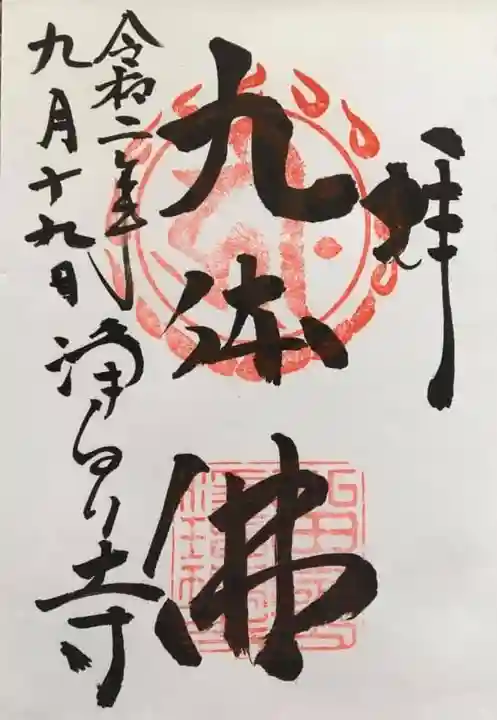 拝
九体佛
令和二年
九月十九日 浄るり寺